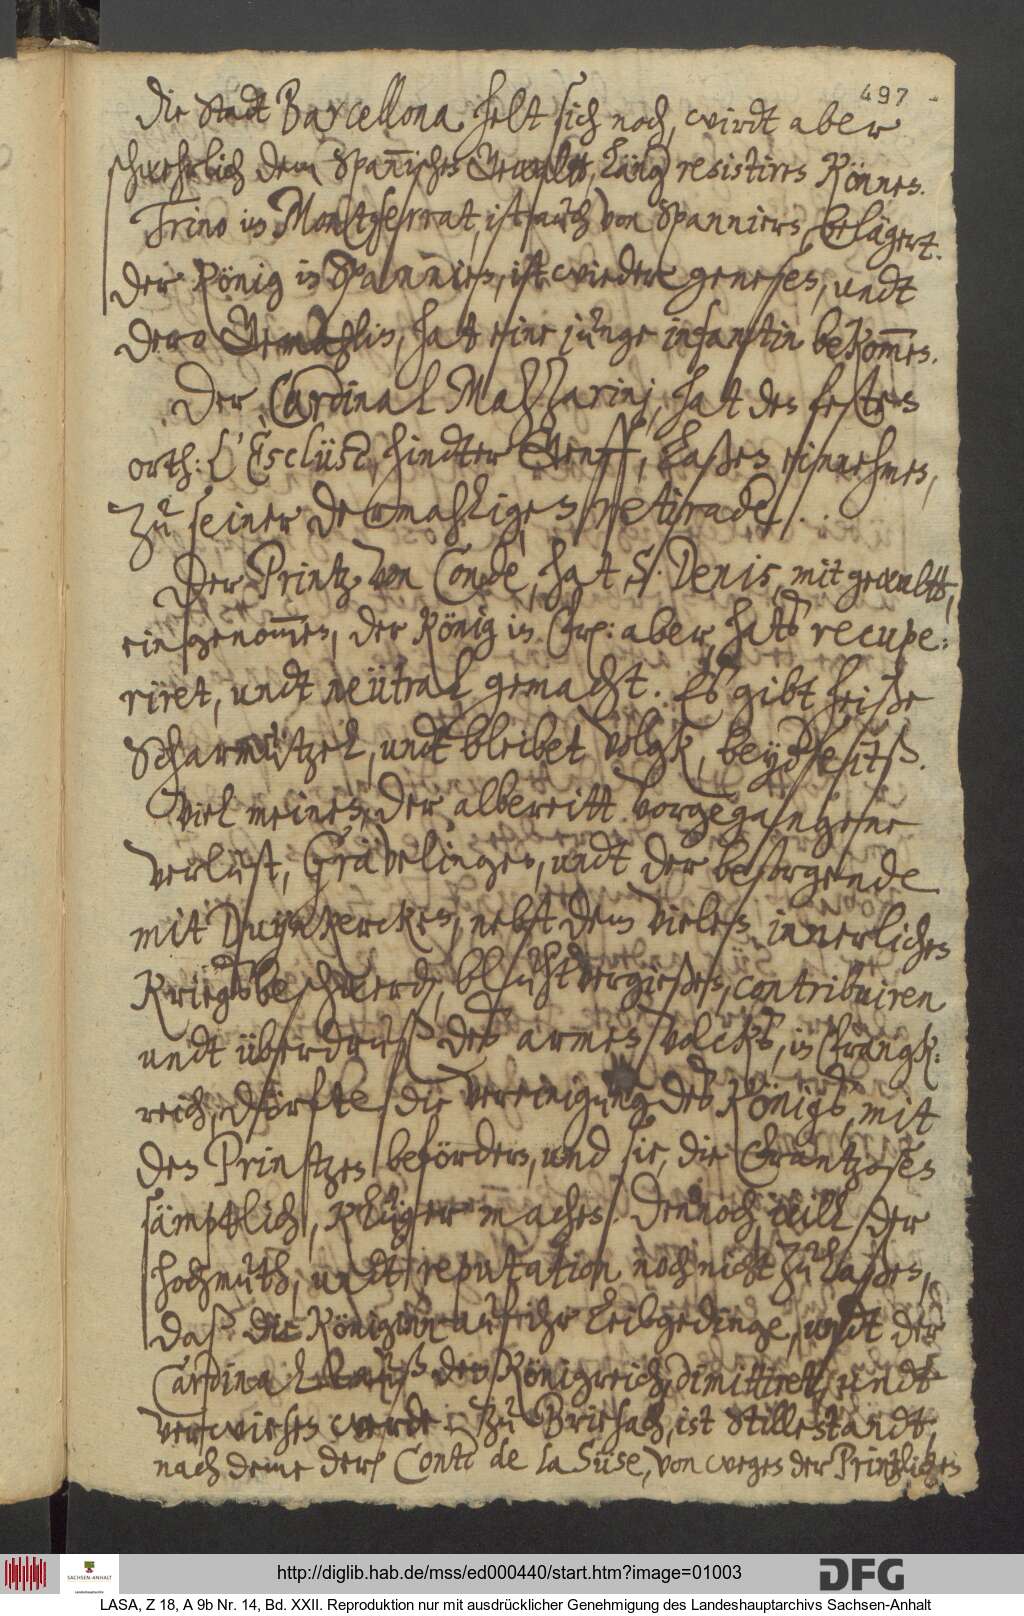 497
Die Stadt Barcellona, helt sich noch, wirdt aber
schwehrlich dem Spannischen Gewaltt, lang resistiren können.
Trino in Montferrat, ist auch von Spanniern, belägert.
Der König in Spannien, ist wieder genesen, undt
dero Gemahlin, hat eine junge infantin bekommen.
Der Cardinal Mazzarinj, hat den festen
orth: L'Escluse, hindter Genff, laßen einnehmen,
zu seiner dermahligen retirade.
Der Printz von Condè, hat S. Denis, mit gewaltt,
eingenommen, der König in Fr: aber, hats recupe:
riret, undt neutral gemacht. Es gibt heiße
Scharmützel, undt bleibet volgk, beydseitß.
Viel meinen, der albereitt vorgegangene
verlust, Gravelingen, undt der besorgende
mit Duynkercken, nebst dem vielen, innerlichen
Kriegsbeschwerden, bluhtvergießen, contribuiren
undt überdruß deß armen volcks, in Frangk:
reich, dörfte die vereinigung des Königs, mit
den Printzen befördern, und sie, die Frantzosen
sämptlich, klüger machen. Dennoch will der
hochmuth, undt reputation noch nicht zulaßen,
daß die Königinn auf ihr leibgedinge, undt der
Cardinal auß dem Königreich, dimittirett, undt
verwiesen werde. Zu Briesach, ist Stillestandt,
nach deme der Conte de la Suse, von wegen der Printzlichen
http://diglib.hab.de/mss/ed000440/start.htm?image=01003
SACHSEN-ANHALT
Landeshauptarchiv
DFG
LASA, Z 18, A 9b Nr. 14, Bd. XXII. Reproduktion nur mit ausdrücklicher Genehmigung des Landeshauptarchivs Sachsen-Anhalt